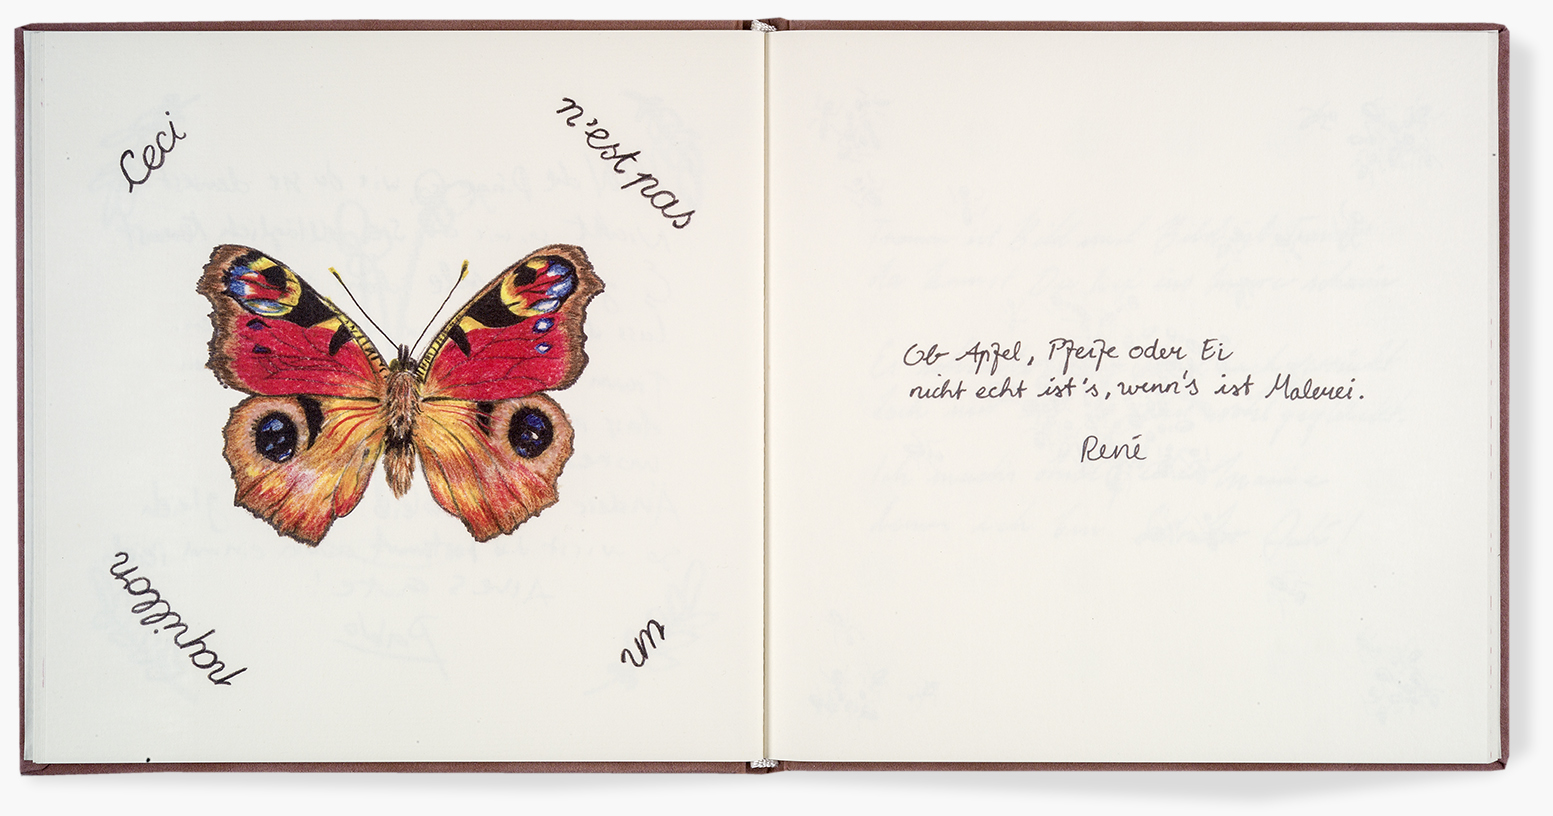 Ceci
n'est pas
un
papillon
Ob Apfel, Pfeife oder Ei
nicht echt ist's, wenn's ist Malerei.
René